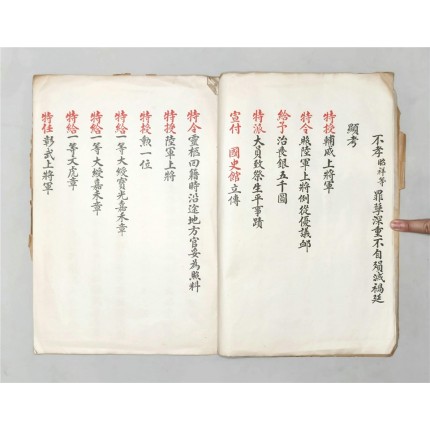 不孝昭祥等罪孽深重不自殞滅禍延
顯考
特授輔威上將軍
特令照陸軍上將例從優議卹
給予治喪銀五千圓
特派大員致祭生平事蹟
宣付 國史館立傳
特令靈櫬回籍時沿途地方官妥為照料
特授陸軍上將
特授勲一位
特給一等大綬寶光嘉禾章
特給一等大綬嘉禾章
特給一等文虎章
特任彰武上將軍